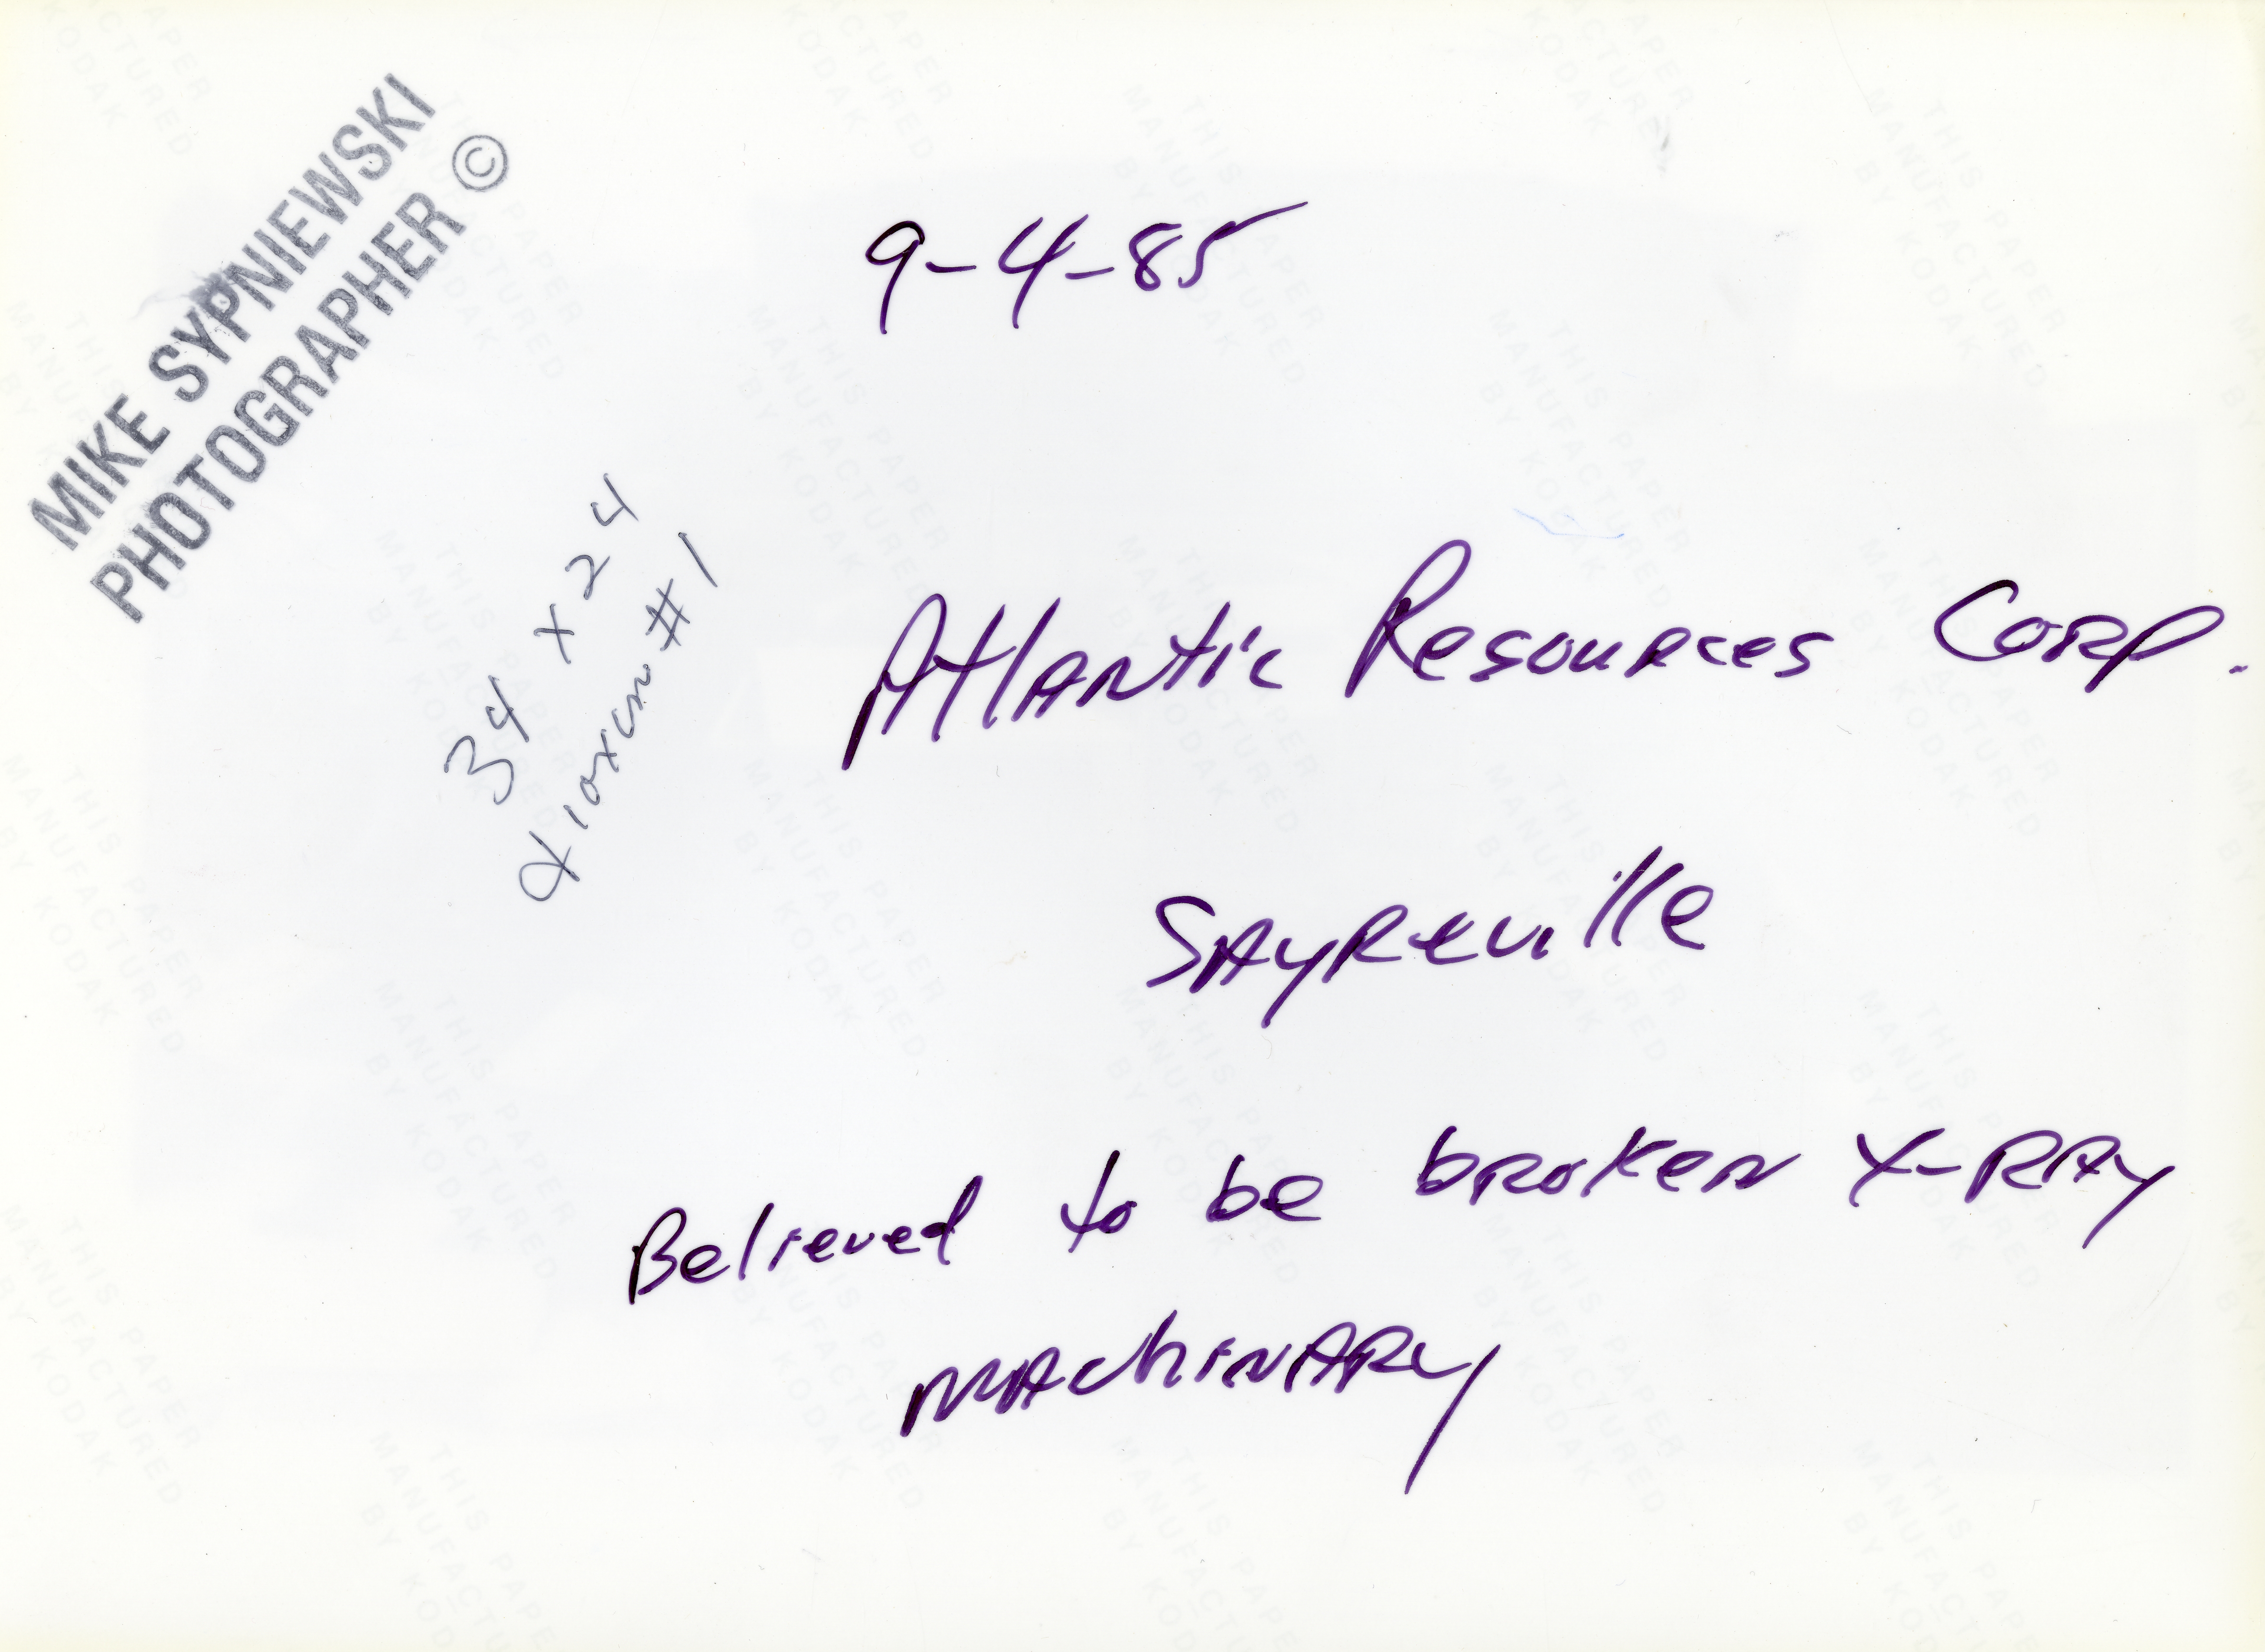 MIKE SYPNIEWSKI
PHOTOGRAPHER ©
9-4-85
34 x 24
#1
Atlantic Resources Corp.
Sayreville
Believed to be broken X-RAY
machinary
THIS PAPER
MANUFACTURED
BY KODAK